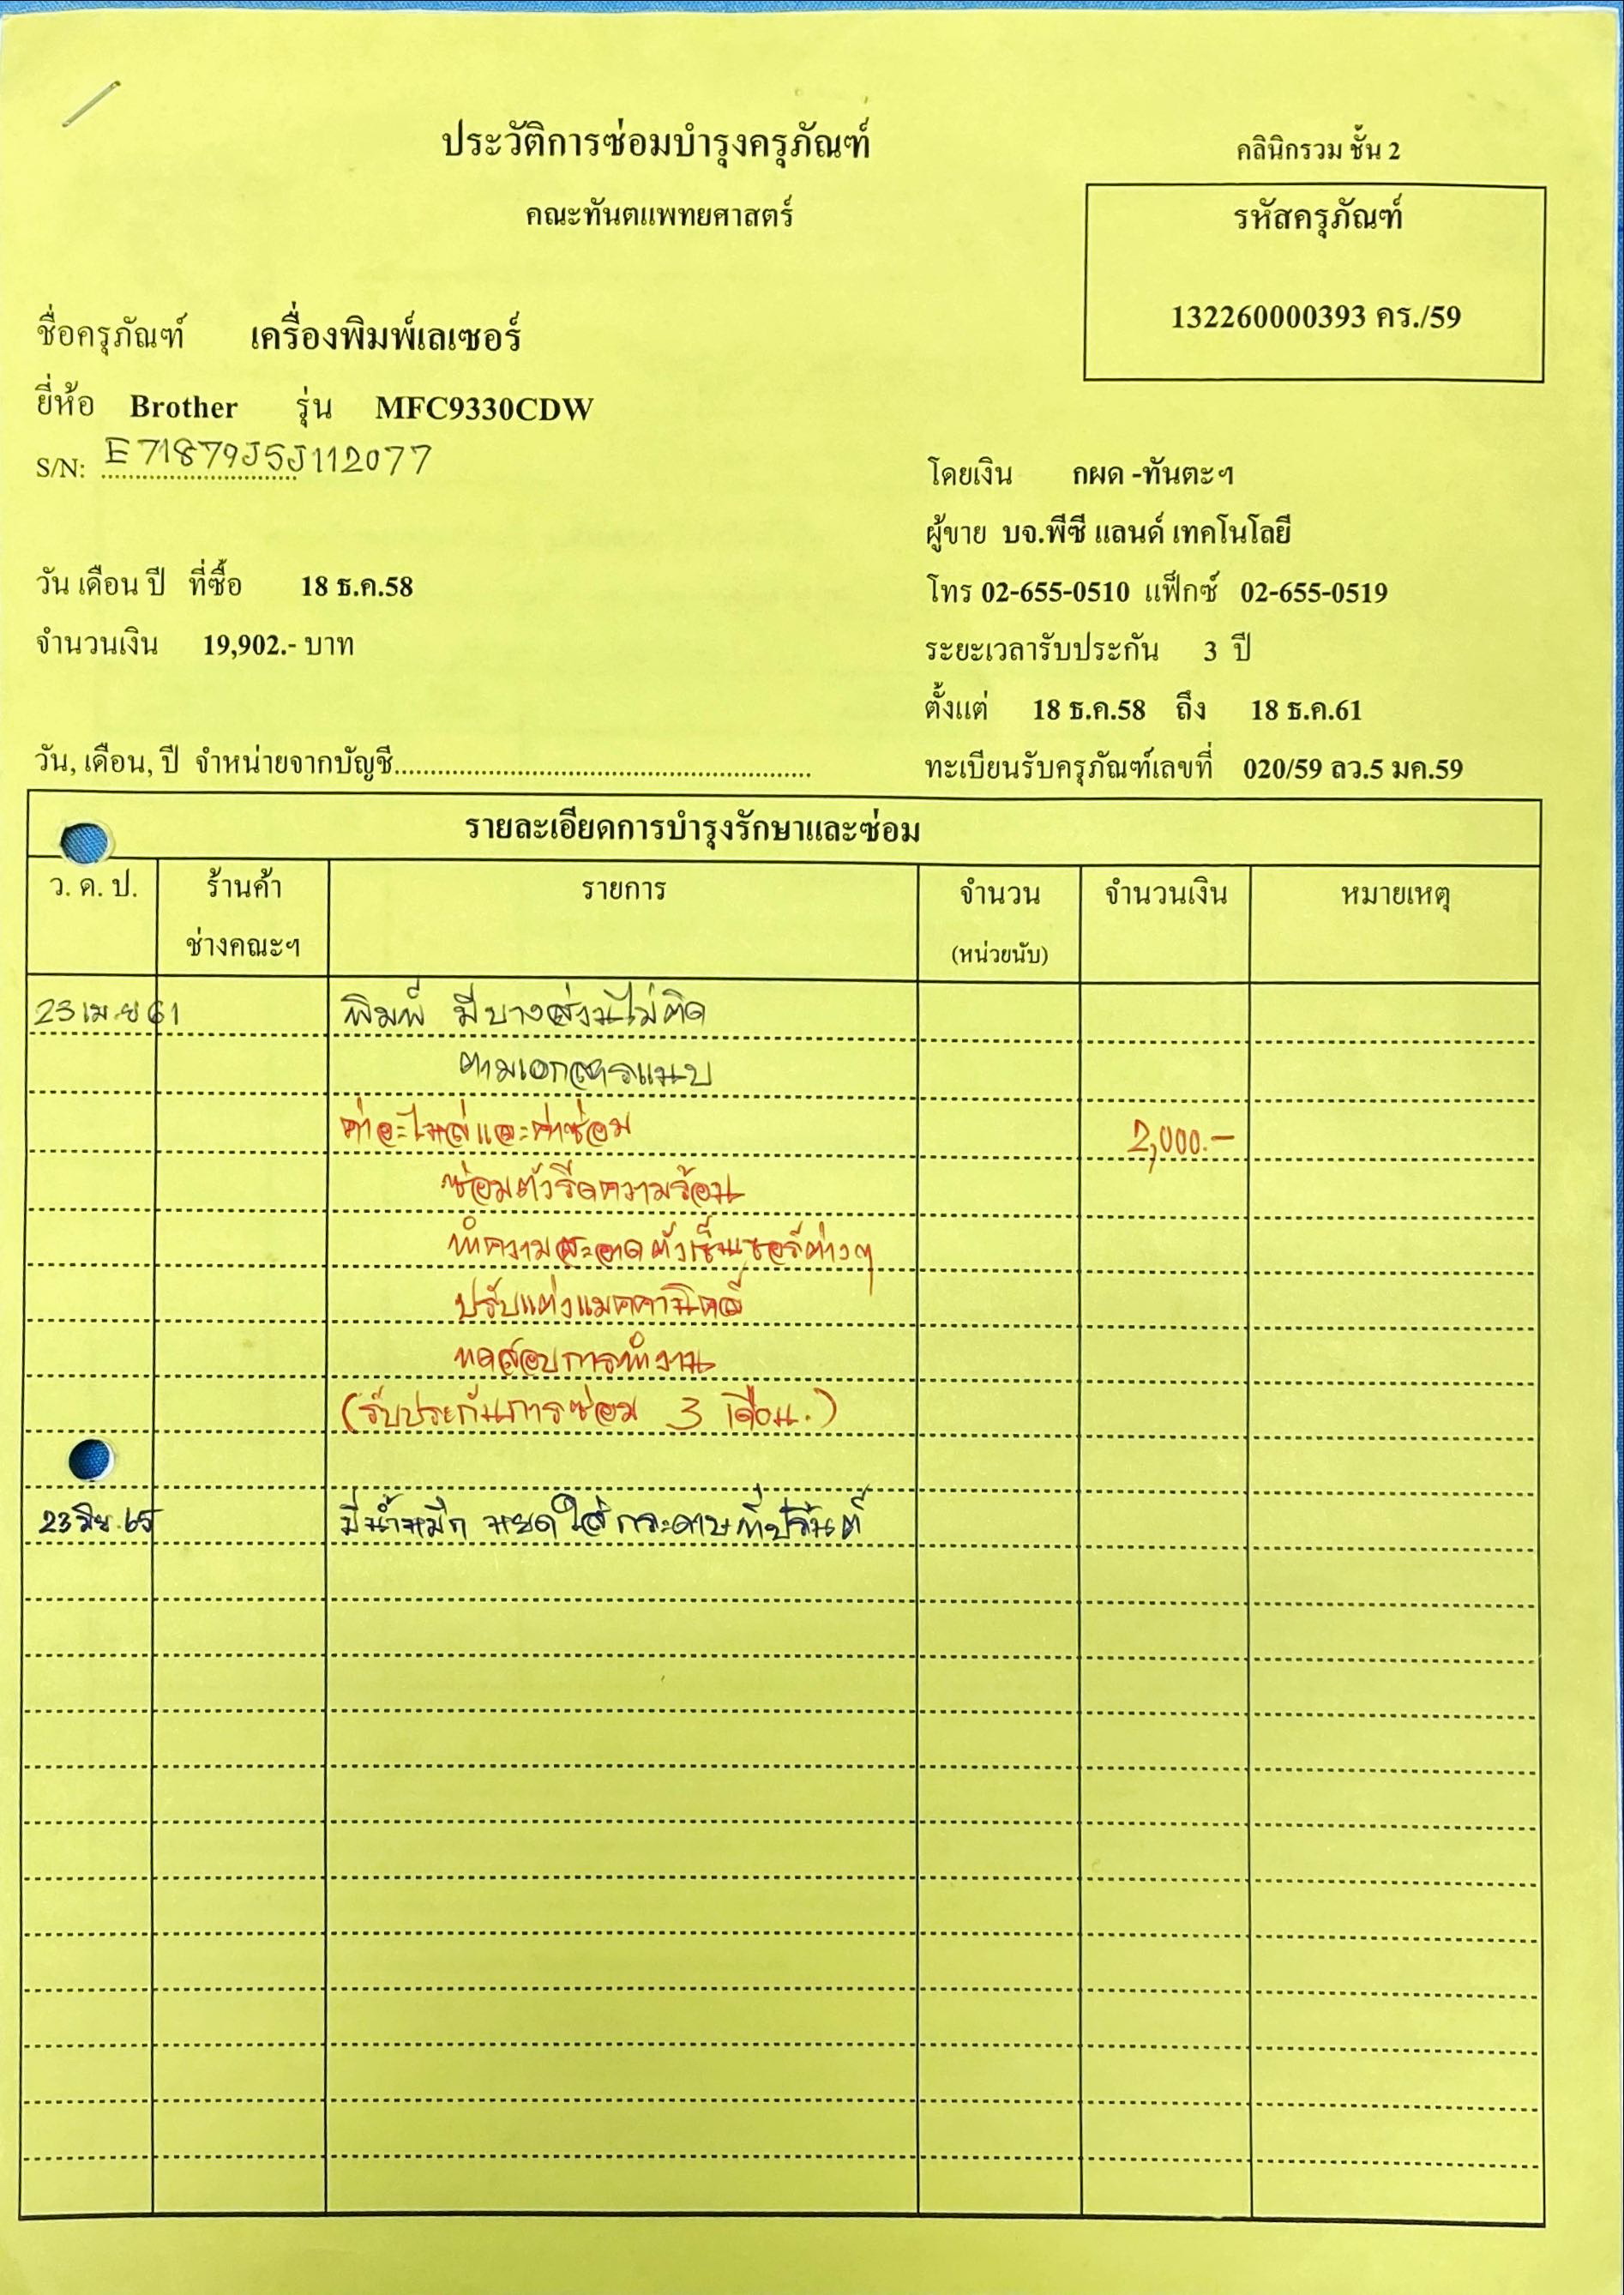 ประวัติการซ่อมบำรุงครุภัณฑ์
คลินิกรวม ชั้น 2
คณะทันตแพทยศาสตร์
รหัสครุภัณฑ์
132260000393 คร./59
ชื่อครุภัณฑ์ เครื่องพิมพ์เลเซอร์
ยี่ห้อ Brother รุ่น MFC9330CDW
S/N: E71879J5J112077
โดยเงิน กผด -ทันตะฯ
ผู้ขาย บจ.พีซี แลนด์ เทคโนโลยี
วัน เดือน ปี ที่ซื้อ 18 ธ.ค.58
โทร 02-655-0510 แฟ็กซ์ 02-655-0519
จำนวนเงิน 19,902.- บาท
ระยะเวลารับประกัน 3 ปี
ตั้งแต่ 18 ธ.ค.58 ถึง 18 ธ.ค.61
วัน, เดือน, ปี จำหน่ายจากบัญชี.........................................................
ทะเบียนรับครุภัณฑ์เลขที่ 020/59 ลว.5 มค.59
รายละเอียดการบำรุงรักษาและซ่อม
ว. ด. ป. ร้านค้า รายการ จำนวน จำนวนเงิน หมายเหตุ
ช่างคณะฯ (หน่วยนับ)
23 เม.ย 61 พิมพ์ มีบางส่วนไม่ติด
ตามเอกสารแนบ
ค่าอะไหล่และค่าซ่อม 2,000.-
ซ่อมตัวรีดความร้อน
ทำความสะอาดตัวเซ็นเซอร์ต่างๆ
ปรับแต่งแมคคานิคส์
ทดสอบการทำงาน
(รับประกันการซ่อม 3 เดือน.)
23 มิย. 65 มีน้ำหมึก หยดใส่กระดาษที่ปริ้นต์